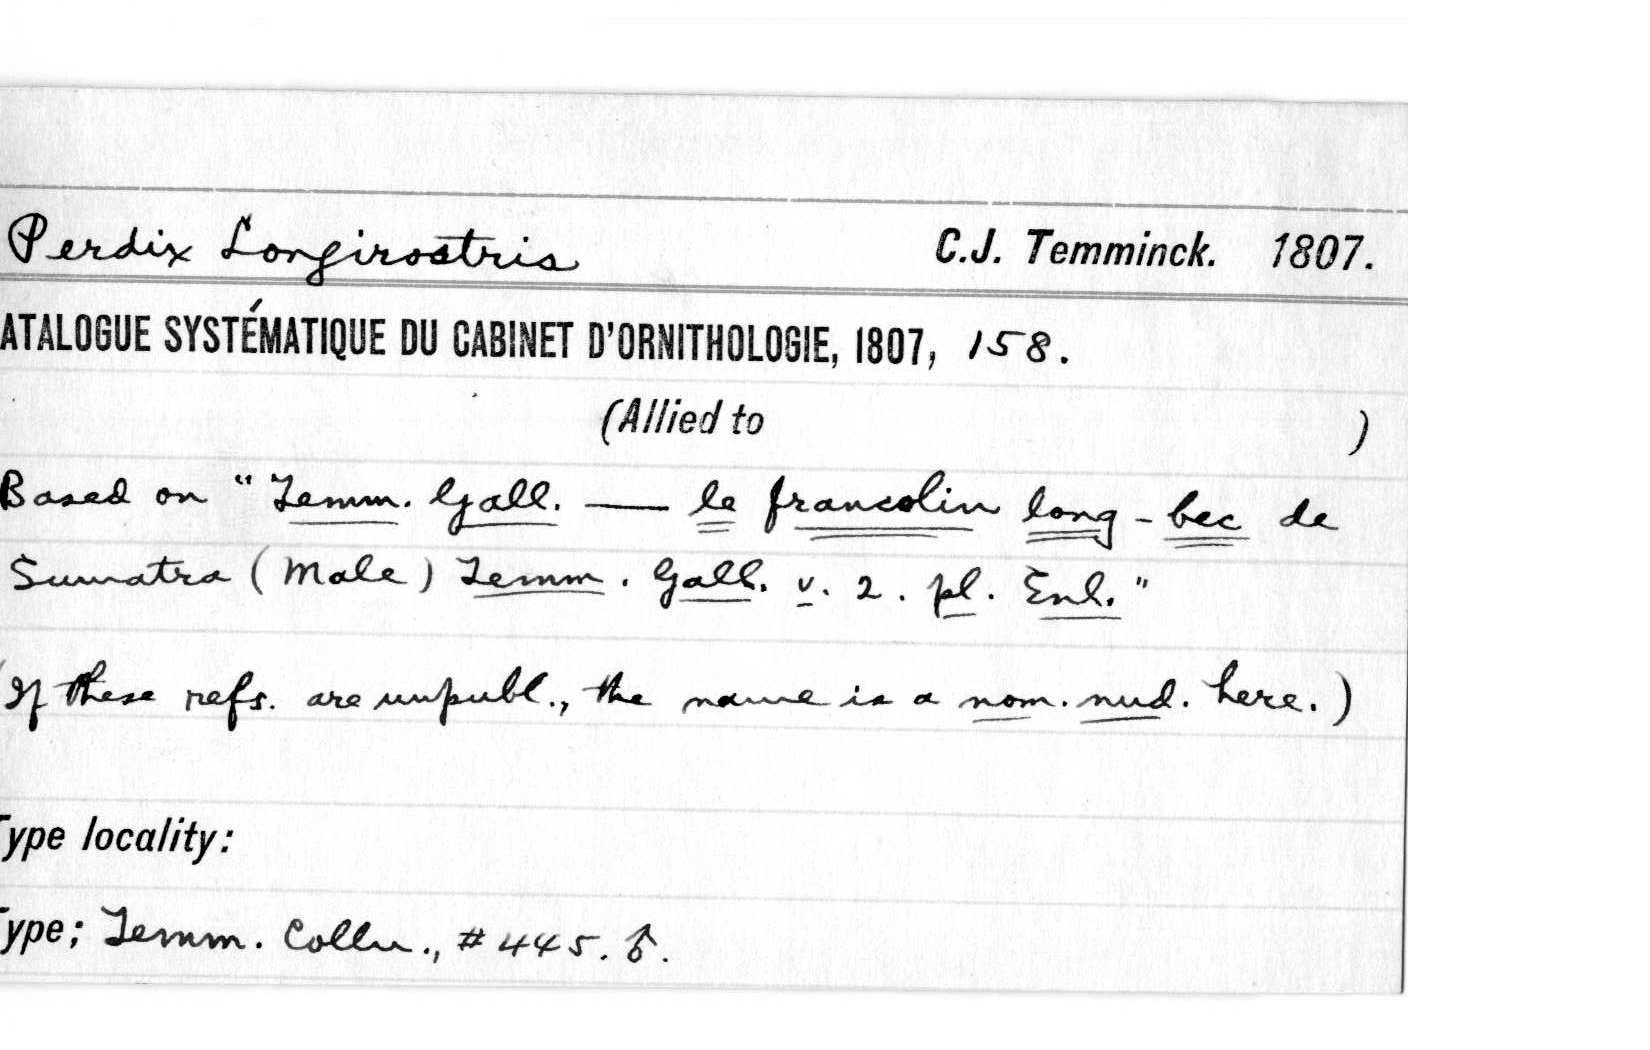 Perdix Longirostris C.J. Temminck. 1807.
ATALOGUE SYSTÉMATIQUE DU CABINET D'ORNITHOLOGIE, 1807, 158.
(Allied to )
Based on "Temm. Gall. — le francolin long-bec de
Sumatra (Male) Temm. Gall. v. 2. pl. Enl."
(If these refs. are unpubl., the name is a nom. nud. here.)
Type locality:
Type; Temm. Colln., #445. ♂.